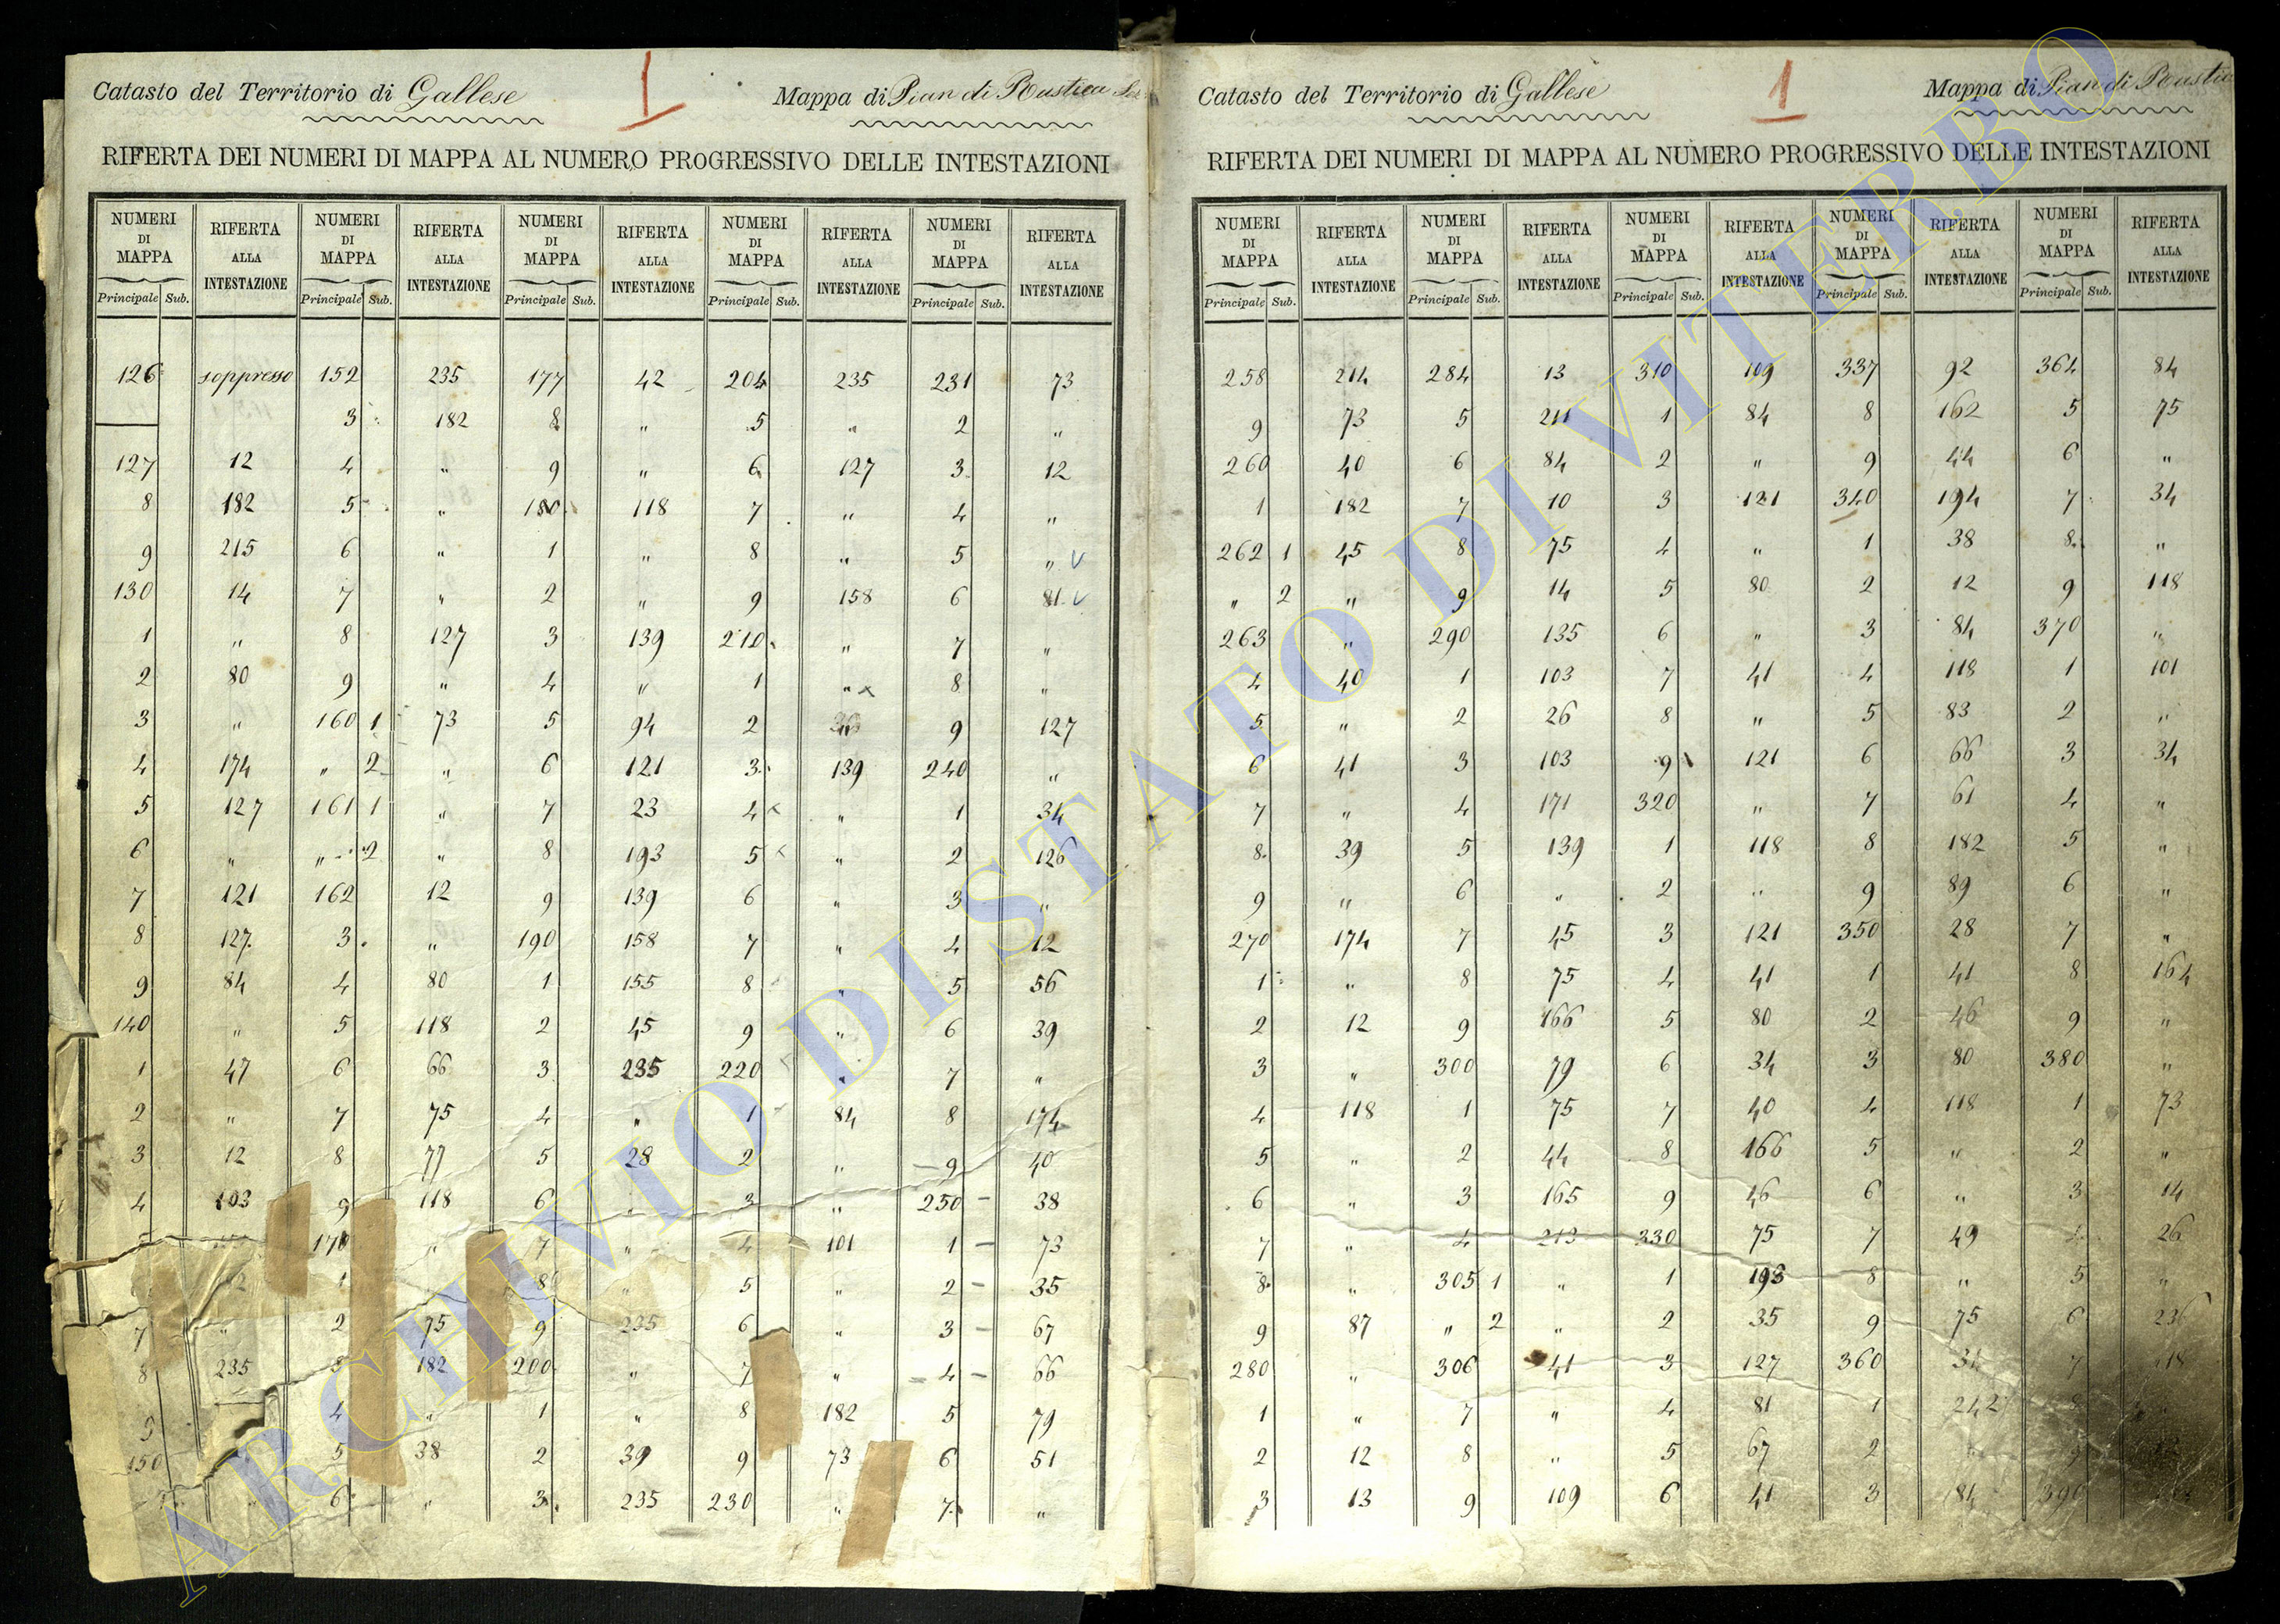 Catasto del Territorio di Gallese 1 Mappa di Pian di Rustica
RIFERTA DEI NUMERI DI MAPPA AL NUMERO PROGRESSIVO DELLE INTESTAZIONI
NUMERI DI MAPPA RIFERTA ALLA INTESTAZIONE NUMERI DI MAPPA RIFERTA ALLA INTESTAZIONE NUMERI DI MAPPA RIFERTA ALLA INTESTAZIONE NUMERI DI MAPPA RIFERTA ALLA INTESTAZIONE NUMERI DI MAPPA RIFERTA ALLA INTESTAZIONE
Principale Sub. Principale Sub. Principale Sub. Principale Sub. Principale Sub.
126 soppresso 152 235 177 42 204 235 231 73
3 182 8 " 5 " 2 "
127 12 4 " 9 " 6 127 3 12
8 182 5 " 180 118 7 " 4 "
9 215 6 " 1 " 8 " 5 "
130 14 7 " 2 " 9 158 6 81
1 " 8 127 3 139 210 " 7 "
2 80 9 " 4 " 1 " 8 "
3 " 160 1 73 5 94 2 9 127
4 174 " 2 " 6 121 3 139 240 "
5 127 161 1 " 7 23 4 " 1 34
6 " " 2 " 8 193 5 " 2 126
7 121 162 12 9 139 6 " 3 "
8 127 3 " 190 158 7 " 4 12
9 84 4 80 1 155 8 " 5 56
140 " 5 118 2 45 9 " 6 39
1 47 6 66 3 235 220 " 7 "
2 " 7 75 4 " 1 84 8 174
3 12 8 77 5 28 2 " 9 40
4 103 9 118 6 " 3 " 250 38
170 " 7 " 4 101 1 73
1 8 " 5 " 2 35
7 " 2 75 9 235 6 " 3 67
8 235 3 182 200 " 7 " 4 66
9 4 " 1 " 8 182 5 79
150 5 38 2 39 9 73 6 51
" 6 " 3 235 230 " 7 "
Catasto del Territorio di Gallese 1 Mappa di Pian di Rustica
RIFERTA DEI NUMERI DI MAPPA AL NUMERO PROGRESSIVO DELLE INTESTAZIONI
NUMERI DI MAPPA RIFERTA ALLA INTESTAZIONE NUMERI DI MAPPA RIFERTA ALLA INTESTAZIONE NUMERI DI MAPPA RIFERTA ALLA INTESTAZIONE NUMERI DI MAPPA RIFERTA ALLA INTESTAZIONE NUMERI DI MAPPA RIFERTA ALLA INTESTAZIONE
Principale Sub. Principale Sub. Principale Sub. Principale Sub. Principale Sub.
258 214 284 13 310 109 337 92 364 84
9 73 5 211 1 84 8 162 5 75
260 40 6 84 2 " 9 44 6 "
1 182 7 10 3 121 340 194 7 34
262 1 45 8 75 4 " 1 38 8 "
" 2 " 9 14 5 80 2 12 9 118
263 " 290 135 6 " 3 84 370 "
4 40 1 103 7 41 4 118 1 101
5 " 2 26 8 " 5 83 2 "
6 41 3 103 9 121 6 66 3 34
7 " 4 171 320 " 7 61 4 "
8 39 5 139 1 118 8 182 5 "
9 " 6 " 2 " 9 89 6 "
270 174 7 45 3 121 350 28 7 "
1 " 8 75 4 41 1 41 8 164
2 12 9 166 5 80 2 46 9 "
3 " 300 79 6 34 3 80 380 "
4 118 1 75 7 40 4 118 1 73
5 " 2 44 8 166 5 " 2 "
6 " 3 165 9 46 6 " 3 14
7 " 4 213 330 75 7 49 4 26
8 " 305 1 " 1 193 8 " 5 "
9 87 " 2 " 2 35 9 75 6 236
280 " 306 41 3 127 360 7
1 " 7 " 4 81 1 242
2 12 8 " 5 67 2
3 13 9 109 6 41 3 84 390
ARCHIVIO DI STATO DI VITERBO